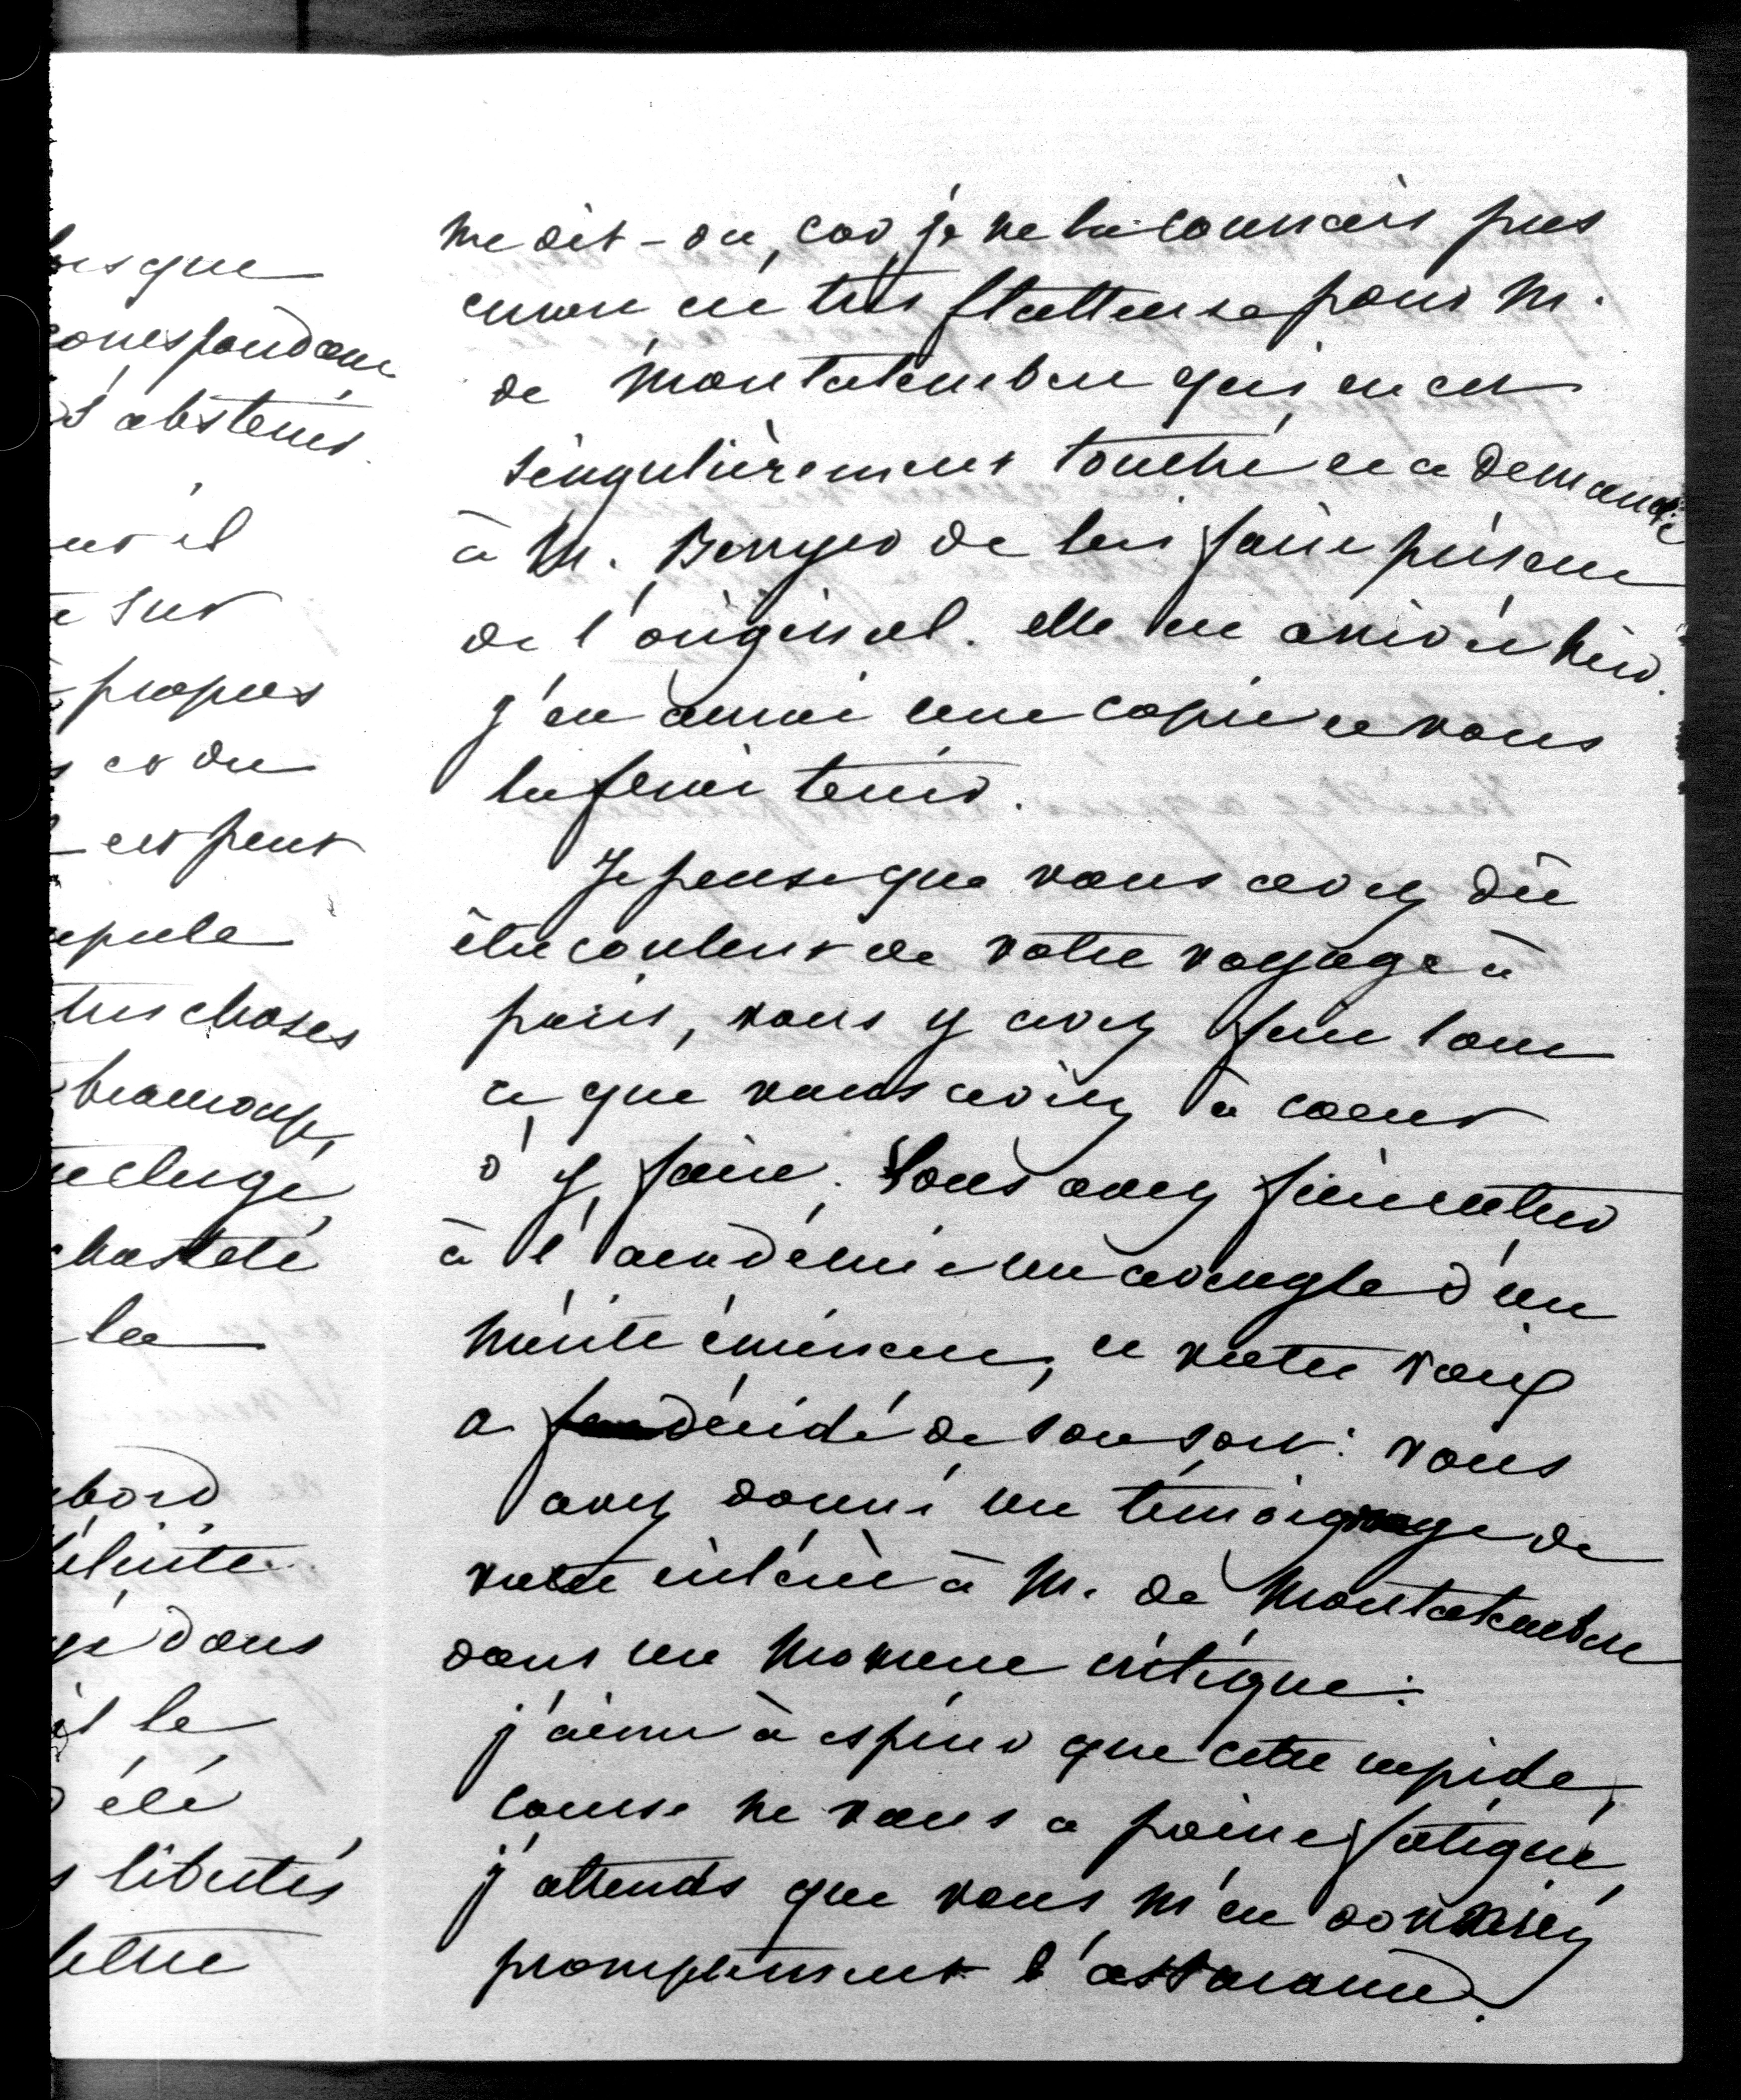 lorsque
correspondance
s'abstenir.
il
sur
propos
et du
est peut
scrupule
tres choses
beaucoup,
clergé,
chasteté
la
abord
dans
il le
été
libertés
lettre
me dit-on, car je ne la connais pas
encore est très flatteuse pour M.
de Montalembert qui en est
singulièrement touché et a demandé
à M. Berryer de lui faire présent
de l'original. elle me arrivée hier.
j'en aurai une copie et vous
la ferai tenir.
Je pense que vous avez dû
être content de votre voyage à
paris, vous y avez fait tout
ce que vous aviez à coeur
d'y faire. Vous avez fait entrer
à l'académie un aveugle d'un
mérite éminent, et votre voix
a décidé de son sort: vous
avez donné un témoignage de
votre intérêt à M. de Montalembert
dans un moment critique.
j'aime à espérer que cette rapide
course ne vous a point fatigué,
j'attends que vous m'en donniez
promptement l'assurance.